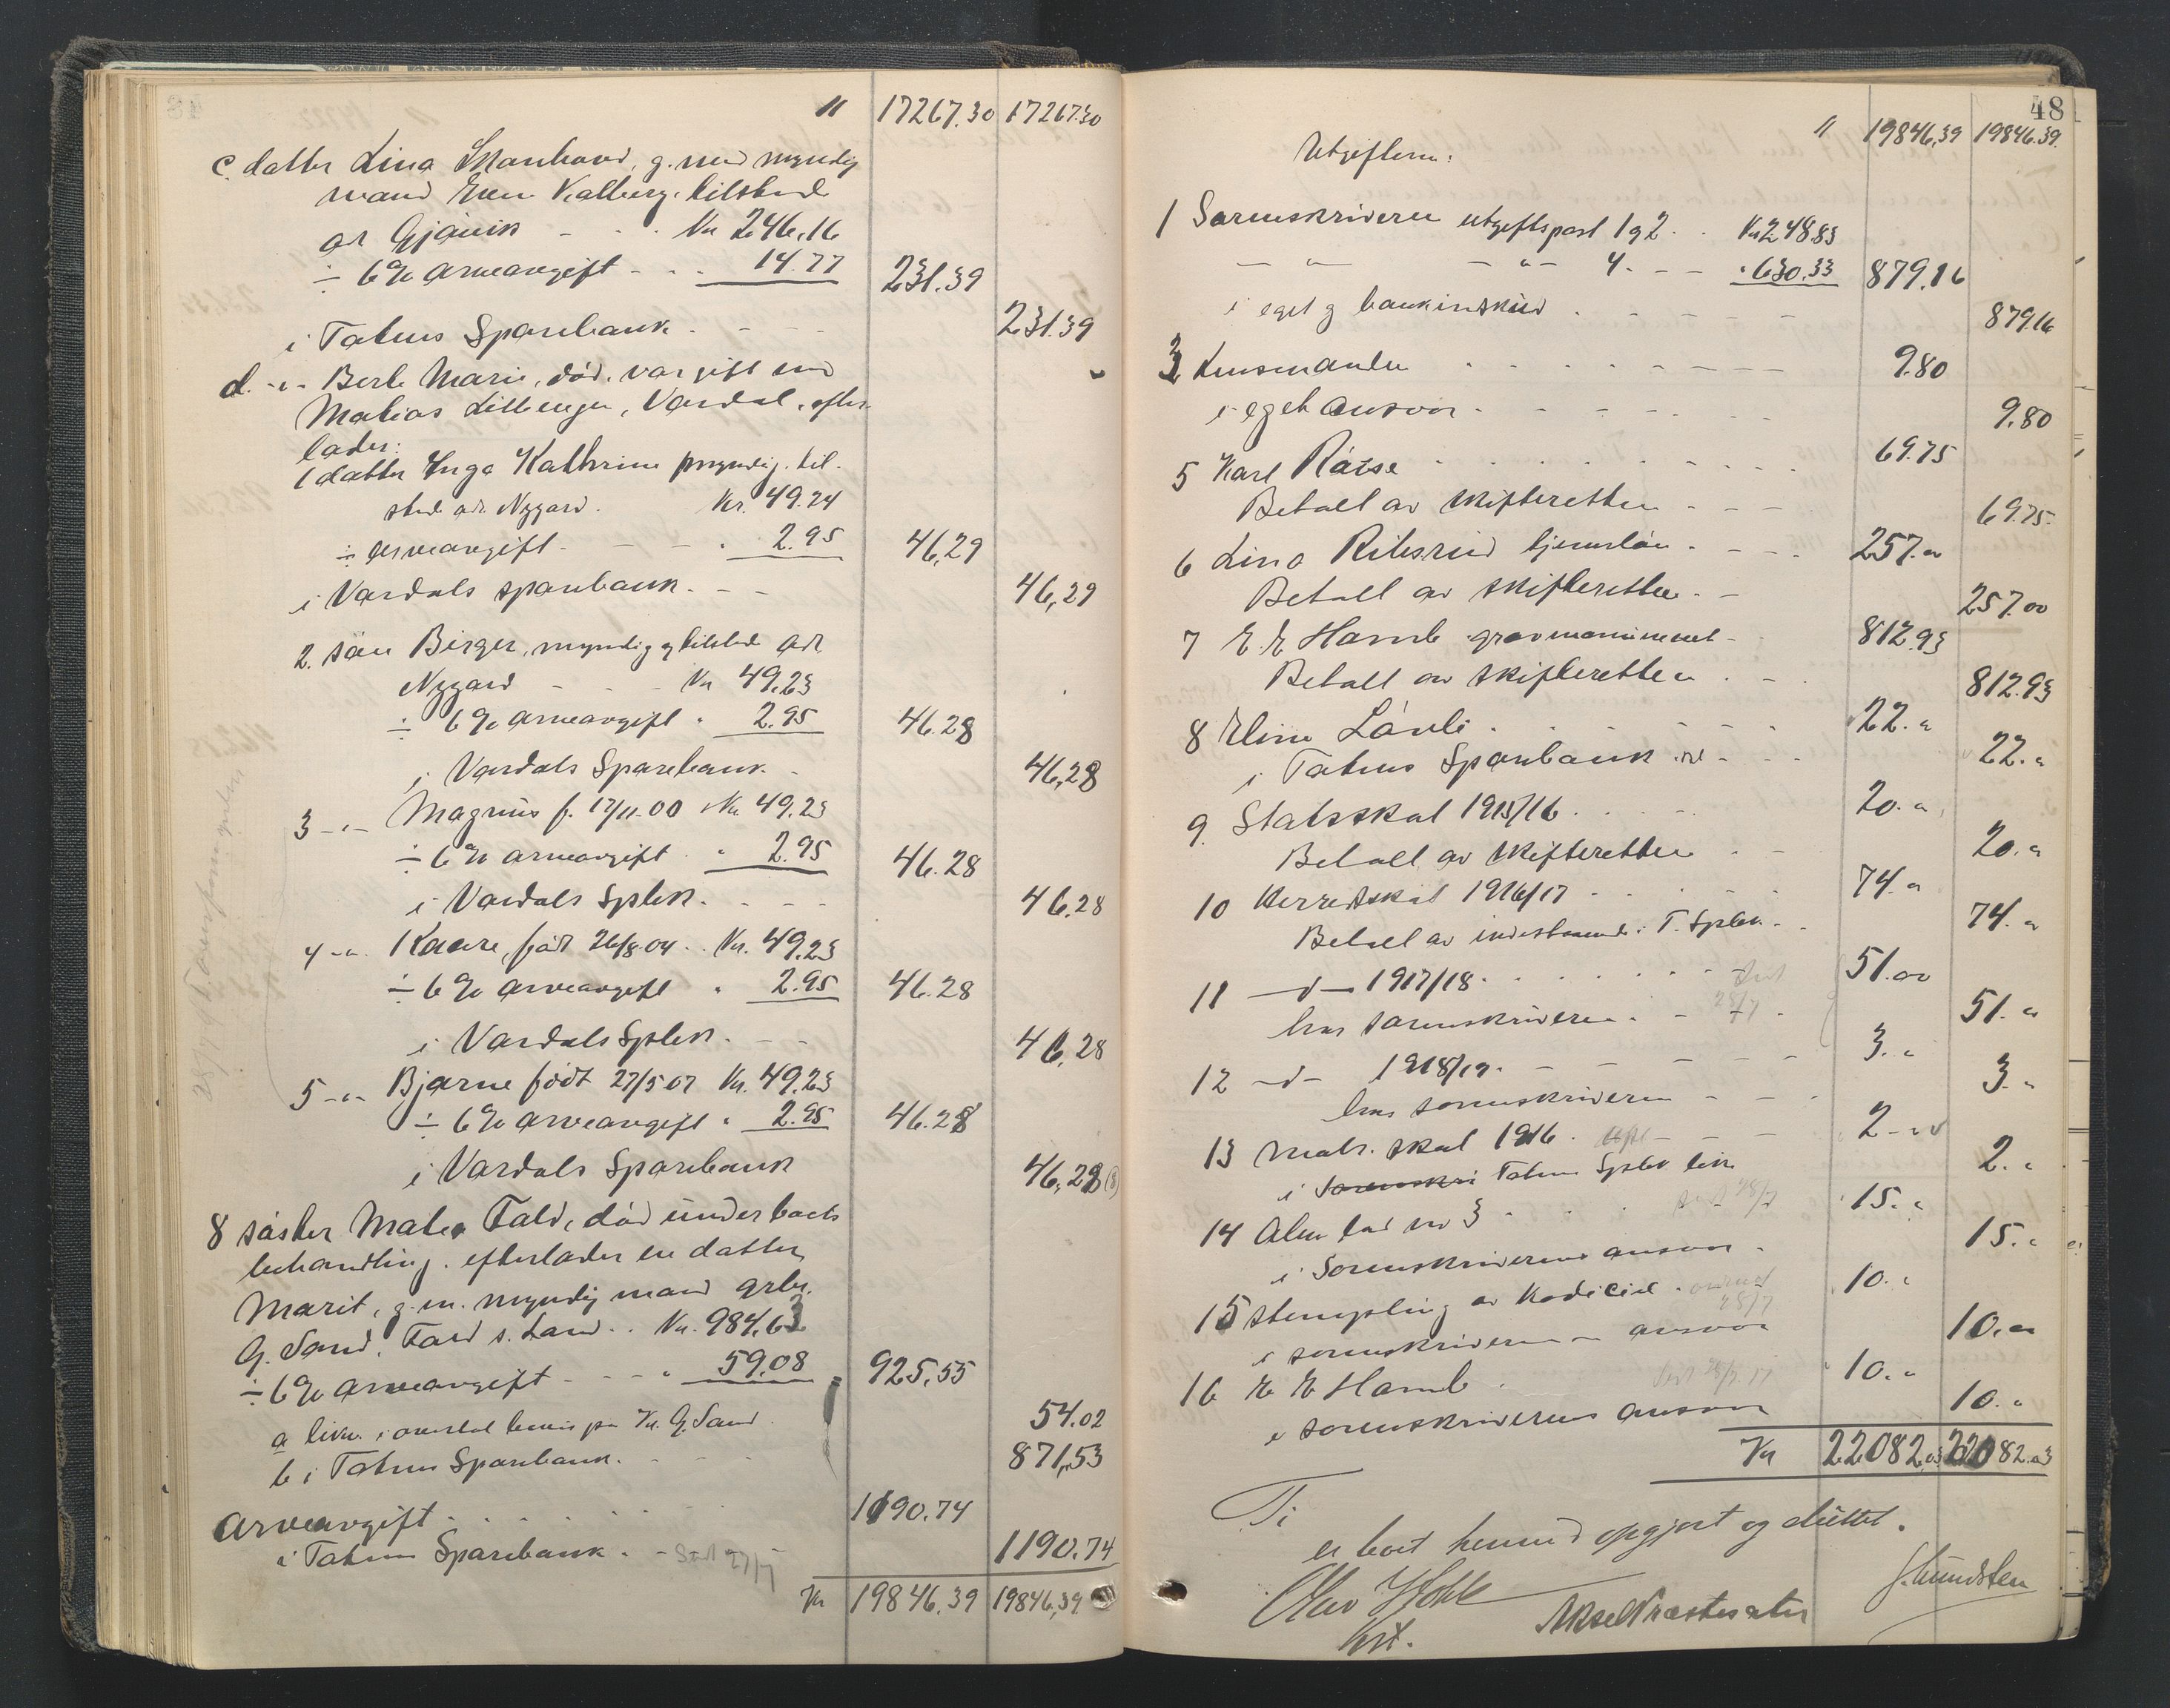 " 17267.30 17267.30
c. datter Lina Skonhovd, g. med myndig
mand Even Kalberg. tilstede
adr Gjövik - - Kr 246.16
÷ 6% arveavgift - - 14.77 231.39
i Totens Sparebank. - - - 231.39
d. -"- Berte Marie, död. var gift med
Matias Lillengen, Vardal, efter-
lader:
1 datter Inga Kathrine myndig. til-
stede adr. Nygard. Kr. 49.24
÷ arveavgift - - " 2.95 46,29
i Vardals sparebank. - - 46,29
2. sön Birger, myndig og tilstede adr.
Nygard - - Kr 49.23
÷ 6% arveavgift " 2.95 46.28
i Vardals Sparebank. - 46,28
3 -"- Magnus f. 17/11-00 Kr. 49.23
÷ 6% arveavgift " 2.95 46.28
i Vardals Spbk. - - - 46.28
4 -"- Kaare, född 26/8-04 .. Kr. 49.23
÷ 6% arveavgift " 2.95 46.28
i Vardals Spbk. - - 46,28
5 -"- Bjarne född 27/5 07 Kr. 49.23
÷ 6% arveavgift " 2.95 46.28
i Vardals Sparebank 46,28 (8)
8 söster Mate Fald, död under boets
behandling. efterlader en datter
Marit, g.m. myndig mand grbr.
G. Sand, Fald s. Land .. Kr. 984,63
÷ 6% arveavgift - - - " 59.08 925,55
a likv. i bevis fra Kr. G. Sand. 54.02
b i Totens Sparebank. - - - 871,53
Arveavgift . . . . . 1190.74
i Totens Sparebank. - Sendt 27/7 1190.74
Kr 19846.39 19846,39
48
" 19846,39 19846.39
Utgiftern:
1 Sorenskriveren utgiftspost 1 og 2 . . Kr 248.83
- " - - " - 4. - - " 630.33 879.16
i eget g bankinskud . - - - - 879.16
3 Lensmanden . . . . - - - - 9.80
i eget ansvar. - - - - 9.80
5 Karl Råise . . . . . 69.75
Betalt av skifteretten - - - 69.75
6 Lina Ritesrud tjenerlön . - - . 257."
Betalt av skifteretten . - 257.00
7 E. E Hamb gravmonument - 812.93
Betalt av skifteretten . - . 812.93
8 Eline Lövli . . . - - - - 22. "
i Totens Sparebank - - - 22. "
9. Statsskat 1915/16 . . . . 20. "
Betalt av skifteretten . - 20. "
10 Herredsskat 1916/17 . . . - - 74. "
Betalt av indestaaende i T. Spbk. - . 74. "
11 -d- 1917/18 . . . . . - - 51.00
hos sorenskriveren. - 28/7 - 51. "
12 -d- 1918/19. - - - - - - 3. "
hos sorenskriveren - - - 3. "
13 matr. skat 1916 . - - - 2 - "
i Sorenskri Totens Spbk 2. "
14 Alm 3 . . . 28/7 15. "
i Sorenskriverens ansvar - 15. "
15 Stempling av Kodicil . 28/7 10. "
i sorenskriverens ansvar 10. "
16 E E Hamb . Sendt 28/7 17 10. "
i sorenskriverens ansvar 10. "
Kr 22082.03 22082.03
Ti
er boet hermed opgjort og sluttet.
J. Lundsten
Aksel Præstesæter